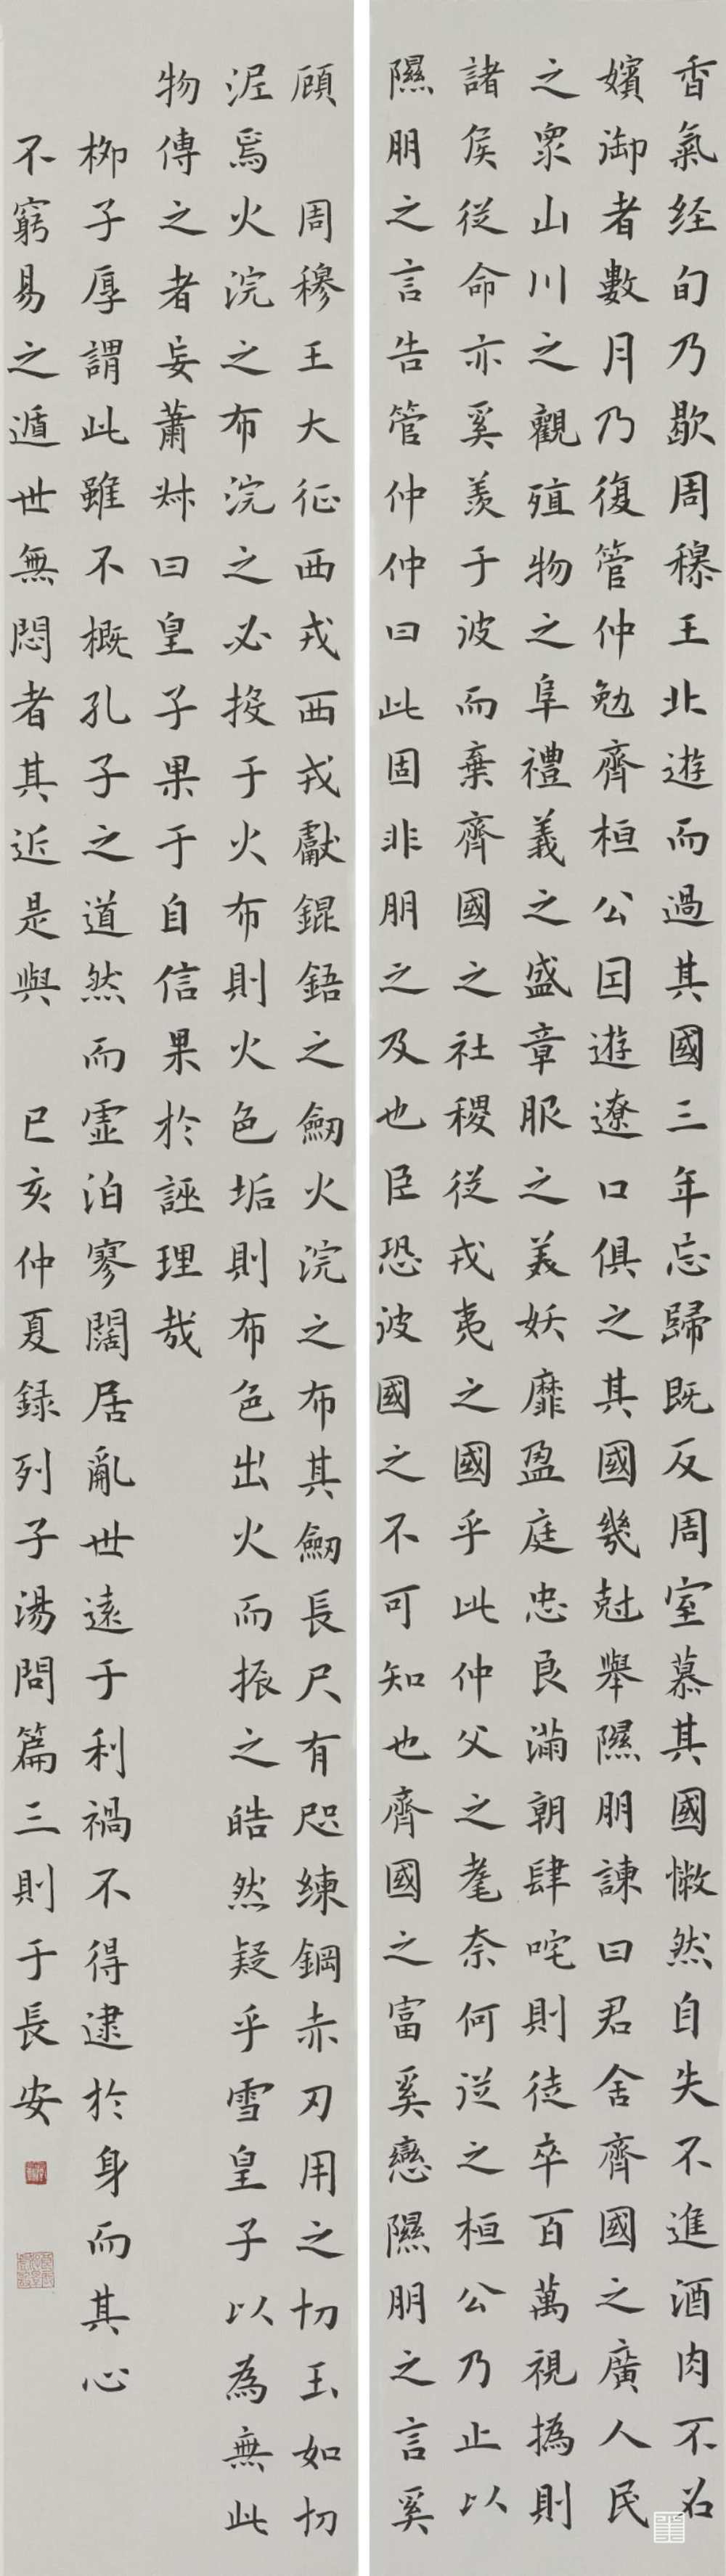 香氣経旬乃歇周穆王北遊而過其國三年忘歸既反周室慕其國憱然自失不進酒肉不召
嬪御者數月乃復管仲勉齊桓公因遊遼口俱之其國幾尅舉隰朋諫曰君舍齊國之廣人民
之衆山川之觀殖物之阜禮義之盛章服之美妖靡盈庭忠良滿朝肆咤則徒卒百萬視撝則
諸侯從命亦奚羨于彼而棄齊國之社稷從戎夷之國乎此仲父之耄奈何從之桓公乃止以
隰朋之言告管仲仲曰此固非朋之及也臣恐彼國之不可知也齊國之富奚戀隰朋之言奚
顧 周穆王大征西戎西戎獻錕鋙之劒火浣之布其劒長尺有咫練鋼赤刃用之切玉如切
泥焉火浣之布浣之必投于火布則火色垢則布色出火而振之皓然疑乎雪皇子以為無此
物傳之者妄蕭叔曰皇子果于自信果於誣理哉
柳子厚謂此雖不概孔子之道然而虛泊寥闊居亂世遠于利禍不得逮於身而其心
不窮易之遁世無悶者其近是與 已亥仲夏録列子湯問篇三則于長安